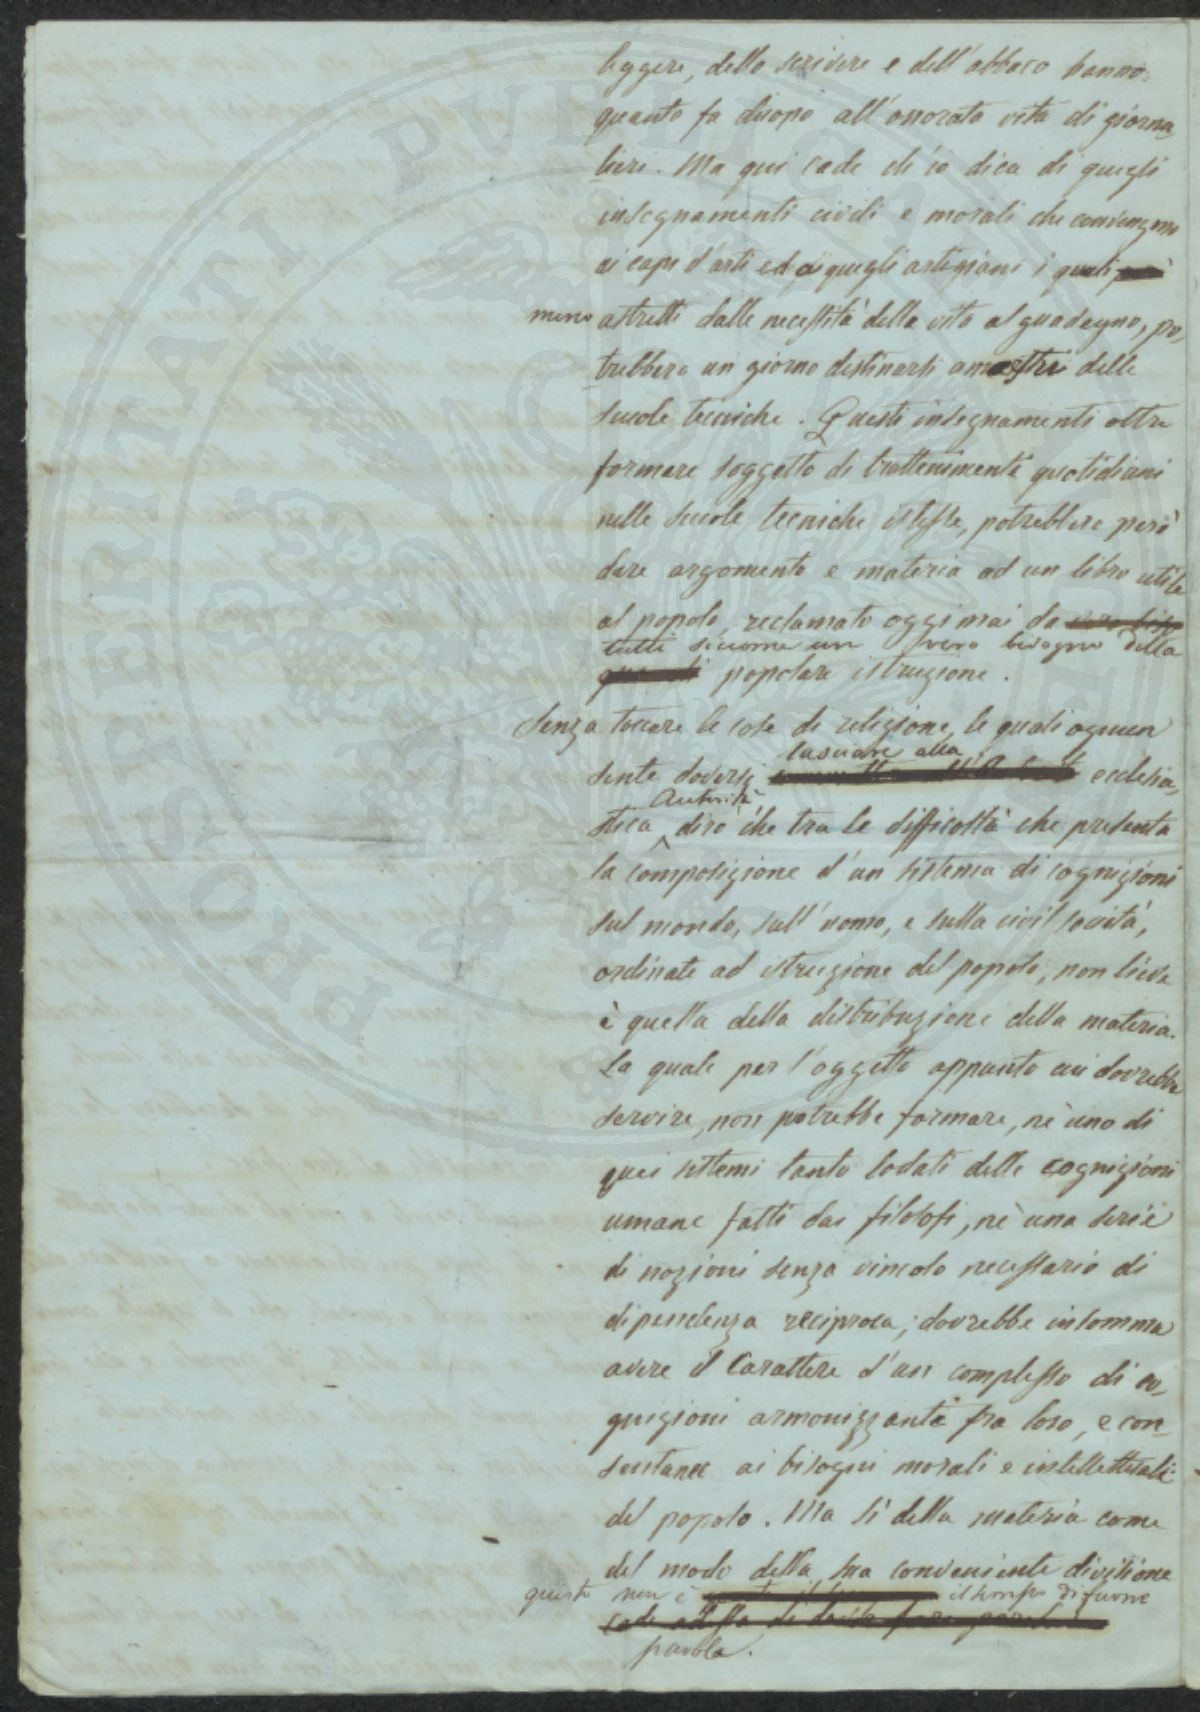 leggere, dello scrivere e dell'abbaco hanno
quanto fa duopo all'onorata vita di giorna-
liere. Ma qui cade ch'io dica di quegli
insegnamenti civili e morali che convengono
ai capi d'arti ed a quegli artigiani i quali
meno astretti dalle necessità della vita al guadagno, po-
trebbero un giorno destinarsi a maestri delle
scuole tecniche. Questi insegnamenti oltre
formare soggetto di trattenimenti quotidiani
nelle scuole tecniche istesse, potrebbero però
dare argomento e materia ad un libro utile
al popolo, reclamato oggimai da
tutti siccome un vero bisogno della
popolare istruzione.
Senza toccare le cose di religione, le quali ognun
lasciare alla
sente doversi ecclesia-
Autorità
stica dirò che tra le difficoltà che presenta
la composizione d'un sistema di cognizioni
sul mondo, sull'uomo, e sulla civil società,
ordinate ad istruzione del popolo, non lieve
è quella della distribuzione della materia.
La quale per l'oggetto appunto cui dovrebbe
servire, non potrebbe formare, nè uno di
quei sistemi tanto lodati delle cognizioni
umane fatti dai filosofi, nè una serie
di nozioni senza vincolo necessario di
dipendenza reciproca; dovrebbe insomma
avere il carattere d'un complesso di co-
gnizioni armonizzante fra loro, e con-
sentanee ai bisogni morali e intellettuali
del popolo. Ma sì della materia come
del modo della sua conveniente divisione
questo non è il tempo di farne
parola.
PROSPERITATI PVBLICAE